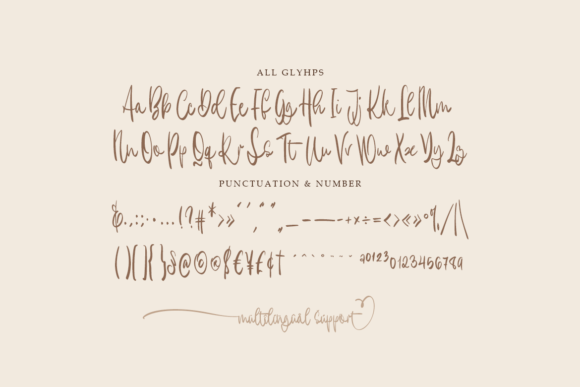 ALL GLYHPS
Aa Bb Cc Dd Ee Ff Gg Hh Ii Jj Kk Ll Mm
Nn Oo Pp Qq Rr Ss Tt Uu Vv Ww Xx Yy Zz
PUNCTUATION & NUMBER
&.,:;·•...!?#*›»
_-–—+×÷=<>«»°%/|\
()[]{}§@©®$€¥£¢†
0123 0123456789
multilingual support